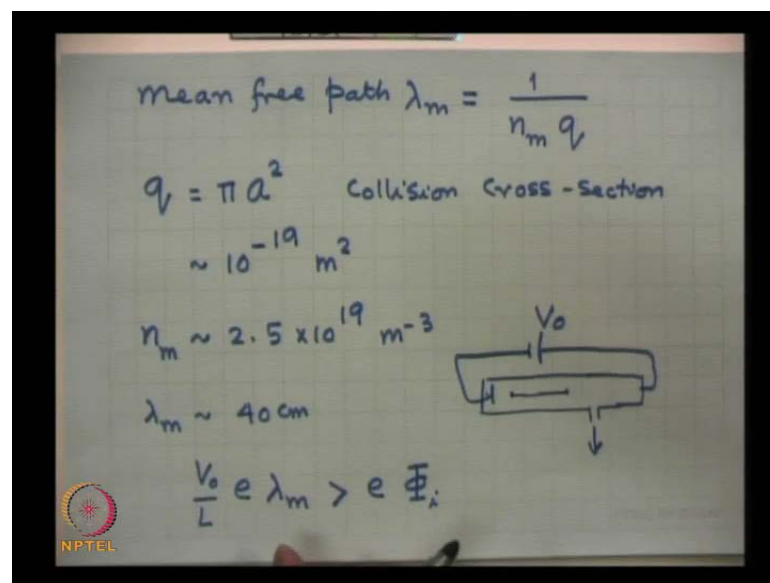 mean free path λₘ = 1 / nₘ q
q = π a² Collision Cross-Section
~ 10⁻¹⁹ m²
nₘ ~ 2.5 × 10¹⁹ m⁻³
V₀
λₘ ~ 40 cm
V₀/L e λₘ > e Φᵢ
NPTEL